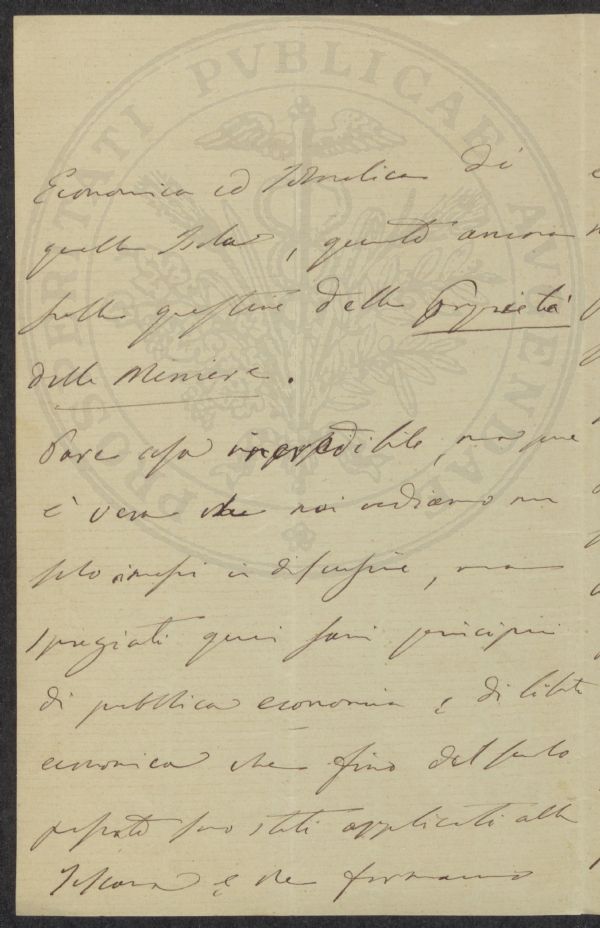 PROSPERITATI PVBLICAE AVGENDAE
Economica ed Idraulica di
quella Isola, quanto ancora
sulla questione della Proprietà
delle Miniere.
Pare cosa incredibile, ma pure
è vera che noi vediamo non
solo messi in discussione, ma
spregiati quei sani principii
di pubblica economia e di libertà
economica che fino dal secolo
passato sono stati applicati alla
Toscana e che formano